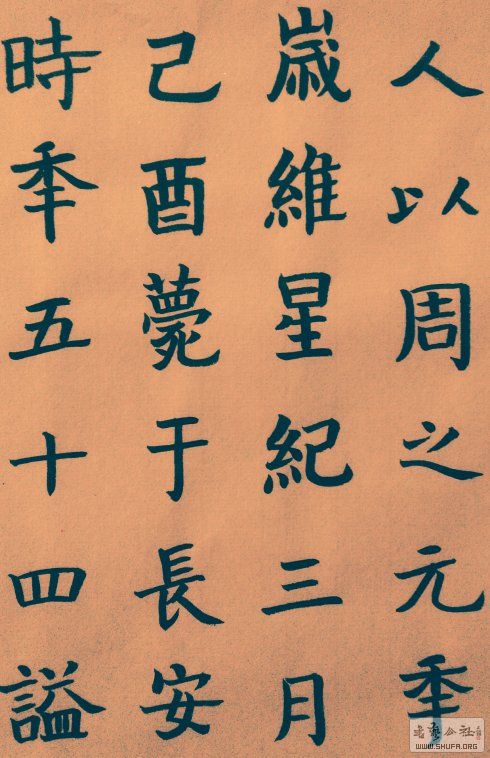 人以周之元年
歲維星紀三月
己酉薨于長安
時年五十四謚
WWW.SHUFA.ORG